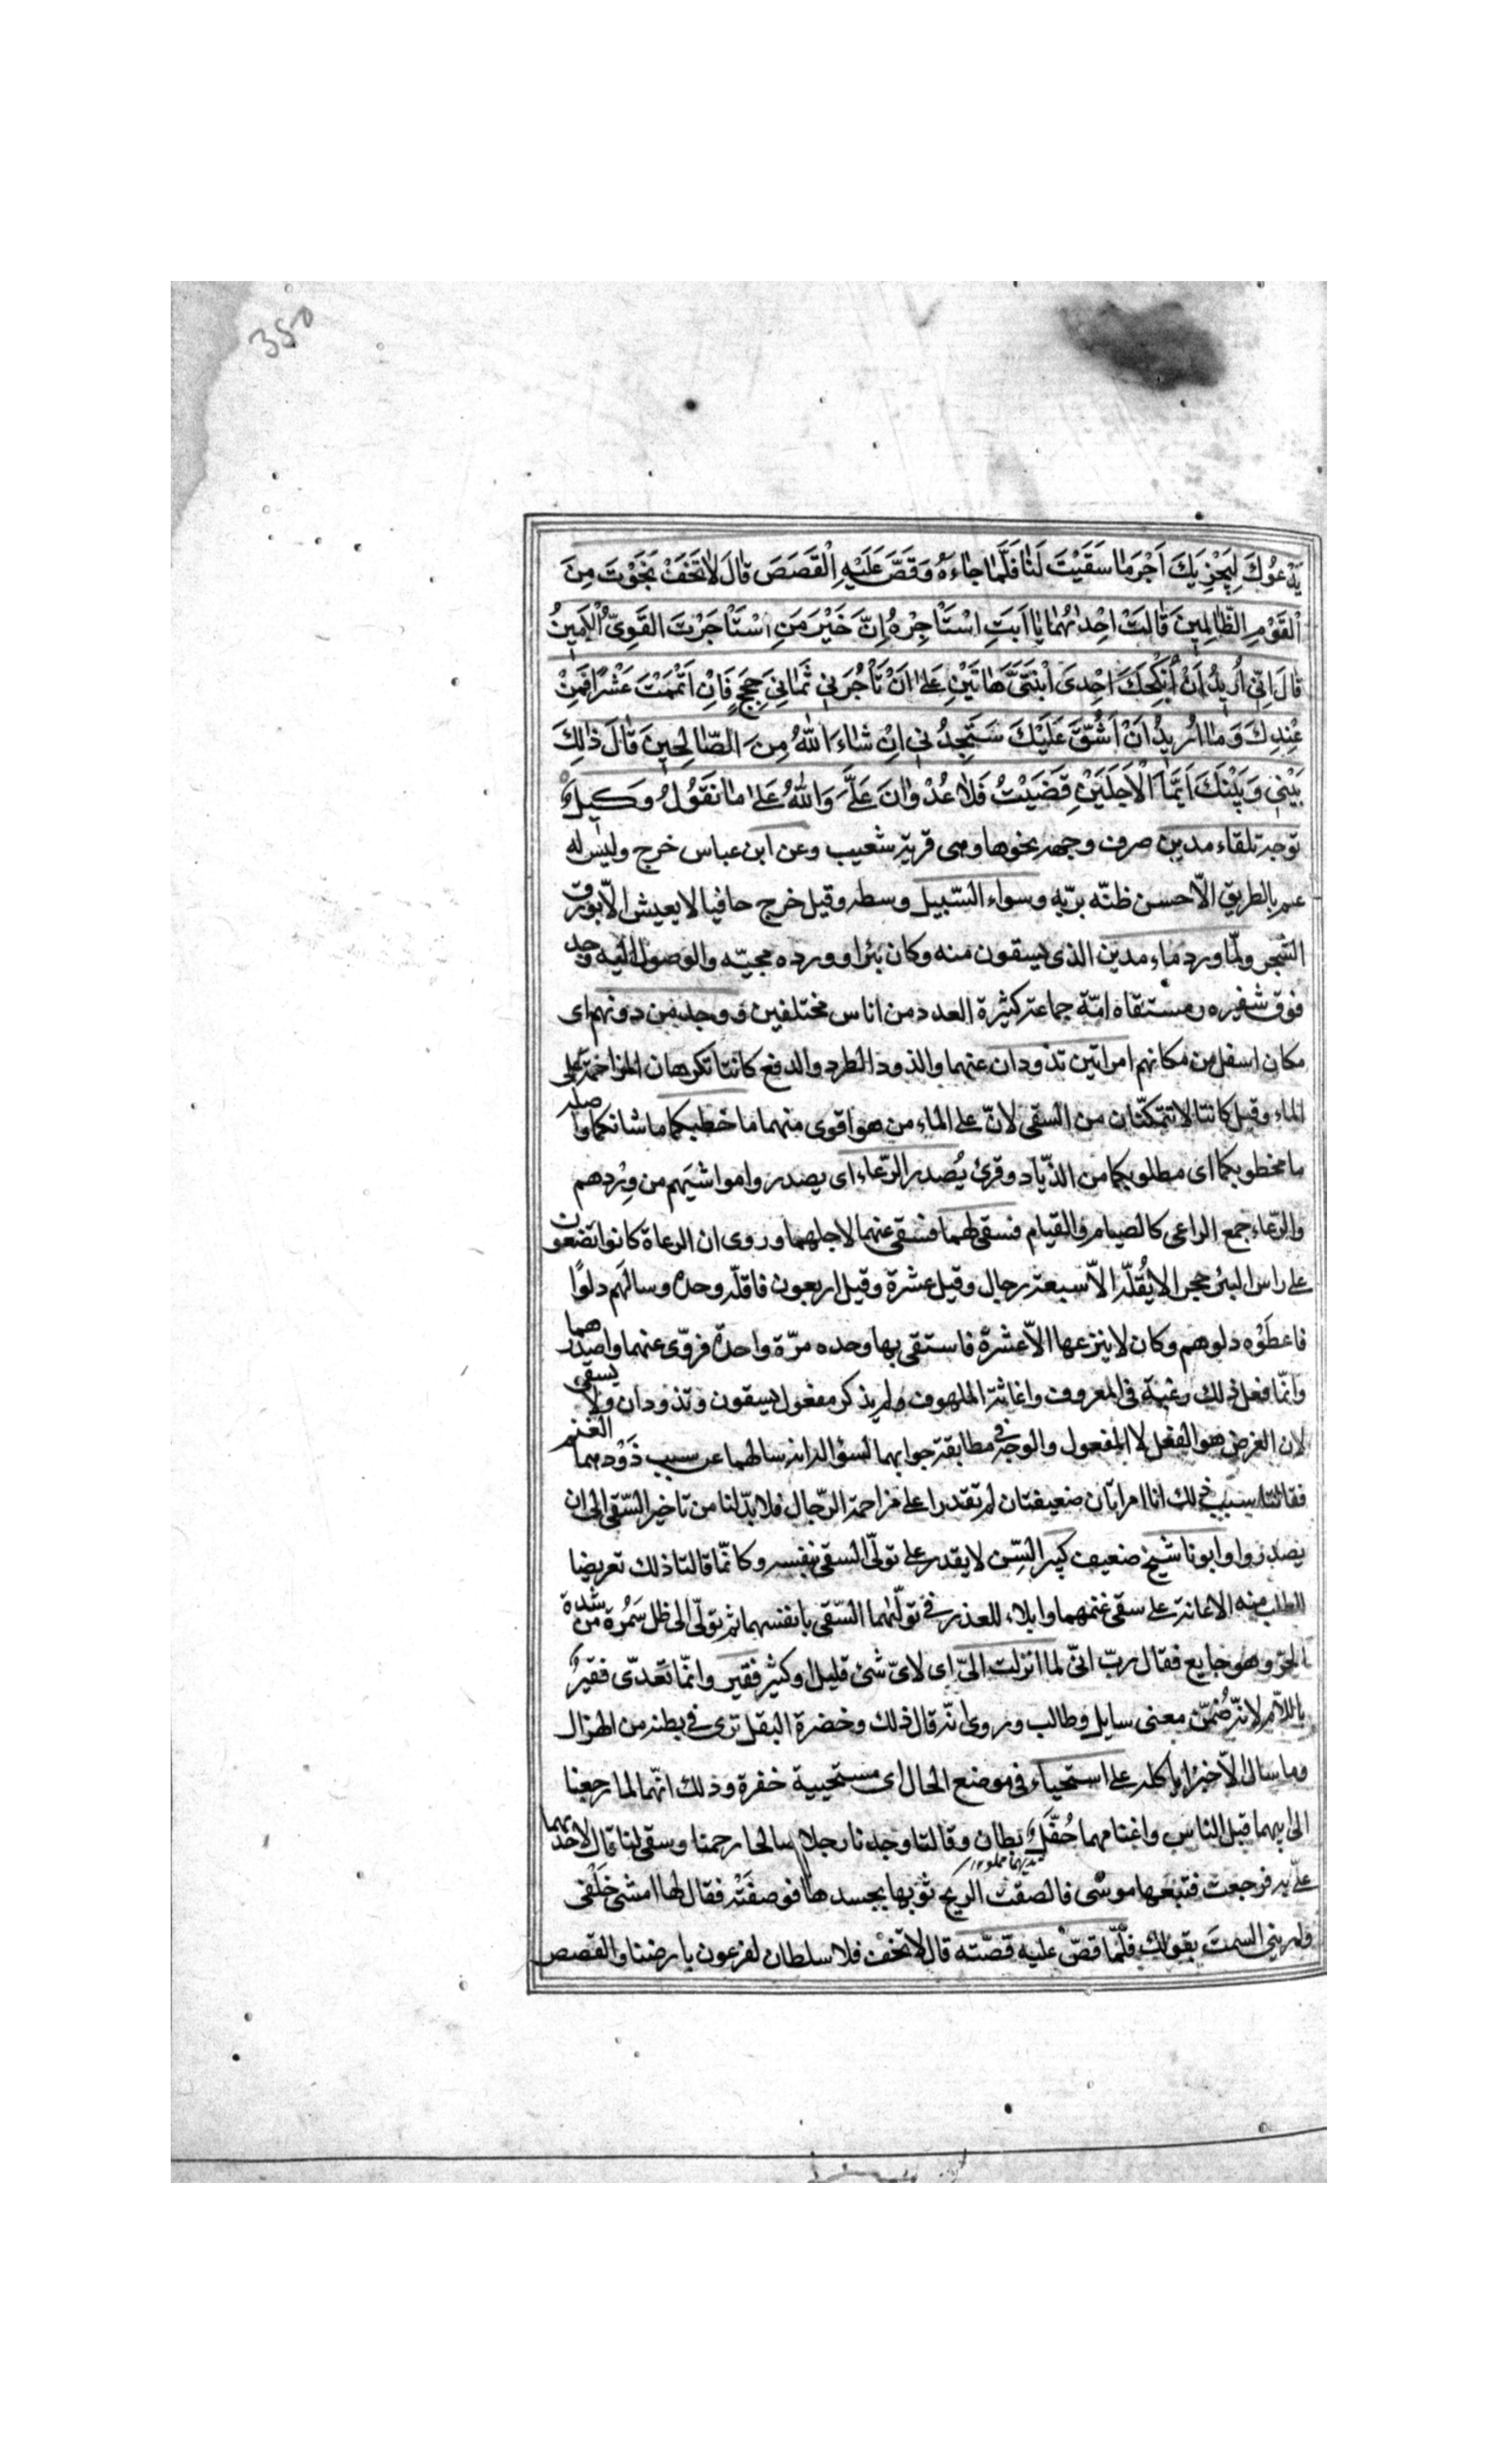 350
يَدْعُوكَ لِيَجْزِيَكَ اَجْرَ مٰا سَقَيْتَ لَنٰا فَلَمّٰا جٰاءَهُ وَقَصَّ عَلَيْهِ الْقَصَصَ قٰالَ لاٰتَخَفْ نَجَوْتَ مِنَ
الْقَوْمِ الظّٰالِمِينَ قٰالَتْ اِحْدٰیهُمٰا يٰا اَبَتِ اسْتَأْجِرْهُ اِنَّ خَيْرَ مَنِ اسْتَأْجَرْتَ القَوِىُّ الْاَمِينُ
قٰالَ اِنّى اُرِيدُ اَنْ اُنْكِحَكَ اِحْدَى ابْنَتَىَّ هٰاتَيْنِ عَلىٰ اَنْ تَأْجُرَنِى ثَمٰانِىَ حِجَجٍ فَاِنْ اَتْمَمْتَ عَشْرًا فَمِنْ
عِنْدِكَ وَمٰا اُرِيدُ اَنْ اَشُقَّ عَلَيْكَ سَتَجِدُنِى اِنْ شٰاءَ اللّٰهُ مِنَ الصّٰالِحِينَ قٰالَ ذٰلِكَ
بَيْنِى وَبَيْنَكَ اَيَّمَا الْاَجَلَيْنِ قَضَيْتُ فَلاٰ عُدْوٰانَ عَلَىَّ وَاللّٰهُ عَلىٰ مٰا نَقُولُ وَكِيلٌ
توجه تلقاء مدين صرف وجهه نحوها وهى قرية شعيب وعن ابن عباس خرج وليس له
علم بالطريق الّا حسن ظنّه بربّه وسواء السّبيل وسطه وقيل خرج حافيا لا يعيش الّا بورق
الشجر ولمّا ورد ماء مدين الذى يسقون منه وكان بئرا ووروده مجيّه والوصول اليه وجد
فوق شفيره ومستقاه امّة جماعة كثيرة العدد من اناس مختلفين ووجد من دونهم اى
مكان اسفل من مكانهم امراتين تذودان عنهما والذود الطرد والدفع كانتا تكرهان المزاحمة على
الماء وقيل كانتا لا تتمكنان من السقى لانّ على الماء من هو اقوى منهما ما خطبكما ما شانكما واصله
ما مخطوبكما اى مطلوبكما من الذّياد وقرئ يُصدر الرّعاء اى يصدروا مواشيَهم من وِردهم
والرّعاء جمع الراعى كالصيام والقيام فسقى لهما فسقى غنهما لاجلهما وروى ان الرعاة كانوا يضعون
على راس البئر حجرا لا يُقلّه الّا سبعة رجال وقيل عشرة وقيل اربعون فاقلّه وحده وسالهَم دلوًا
فاعطَوْه دلوهم وكان لا ينزعها الاّ عشرة فاستقى بها وحده مرّة واحدة فروّى غنهما واصدرهما
وانّما فعل ذلك رغبة فى المعروف واغاثة الملهوف ولم يذكر مفعول يسقون وتذودان ولا يسقى
لان الغرض هو الفعل لا المفعول والوجه فى مطابقة جوابهما لسؤاله انه سالهما عن سبب ذَوْدهما الغنم
فقالتا سبب ذلك انا امراتان ضعيفتان لم تقدرا على مزاحمة الرّجال فلا بدّ لنا من تاخير السّقى الى ان
يصدروا وابونا شيخ ضعيف كبير السِّن لا يقدر على تولّى السقى بنفسه وكانّما قالتا ذلك تعريضا
للطلب منه الاعانة على سقى غنمهما وابلاء للعذر فى تولّيهما السّقى بانفسهما ثم تولّى الى ظل سَمُرة من شدة
الحرّ وهو جايع فقال ربّ انىّ لما انزلت الىّ اى لاىّ شئ قليل او كثير فقير وانّما تعدّى فقير
باللام لانه ضُمّن معنى سايل وطالب وروى انّه قال ذلك وخضرة البقل ترى فى بطنه من الهزال
وما سال الّا خبزا ياكله على استحياء فى موضع الحال اى مستحيية خفرة وذلك انّهما لما رجعتا
الى ابيهما قبل الناس واغنامهما حُفّل بطان وقالتا وجدنا رجلا صالحا رحمنا وسقى لنا قال لاحديهما
علىّ به فرجعت فتبعها موسى فالصقت الريح ثوبها بجسدها فوصفَتْه فقال لها امشى خَلْفى
وارينى السمت بقولك فلمّا قصّ عليه قصّته قال لا تخف فلا سلطان لفرعون بارضنا والقصص